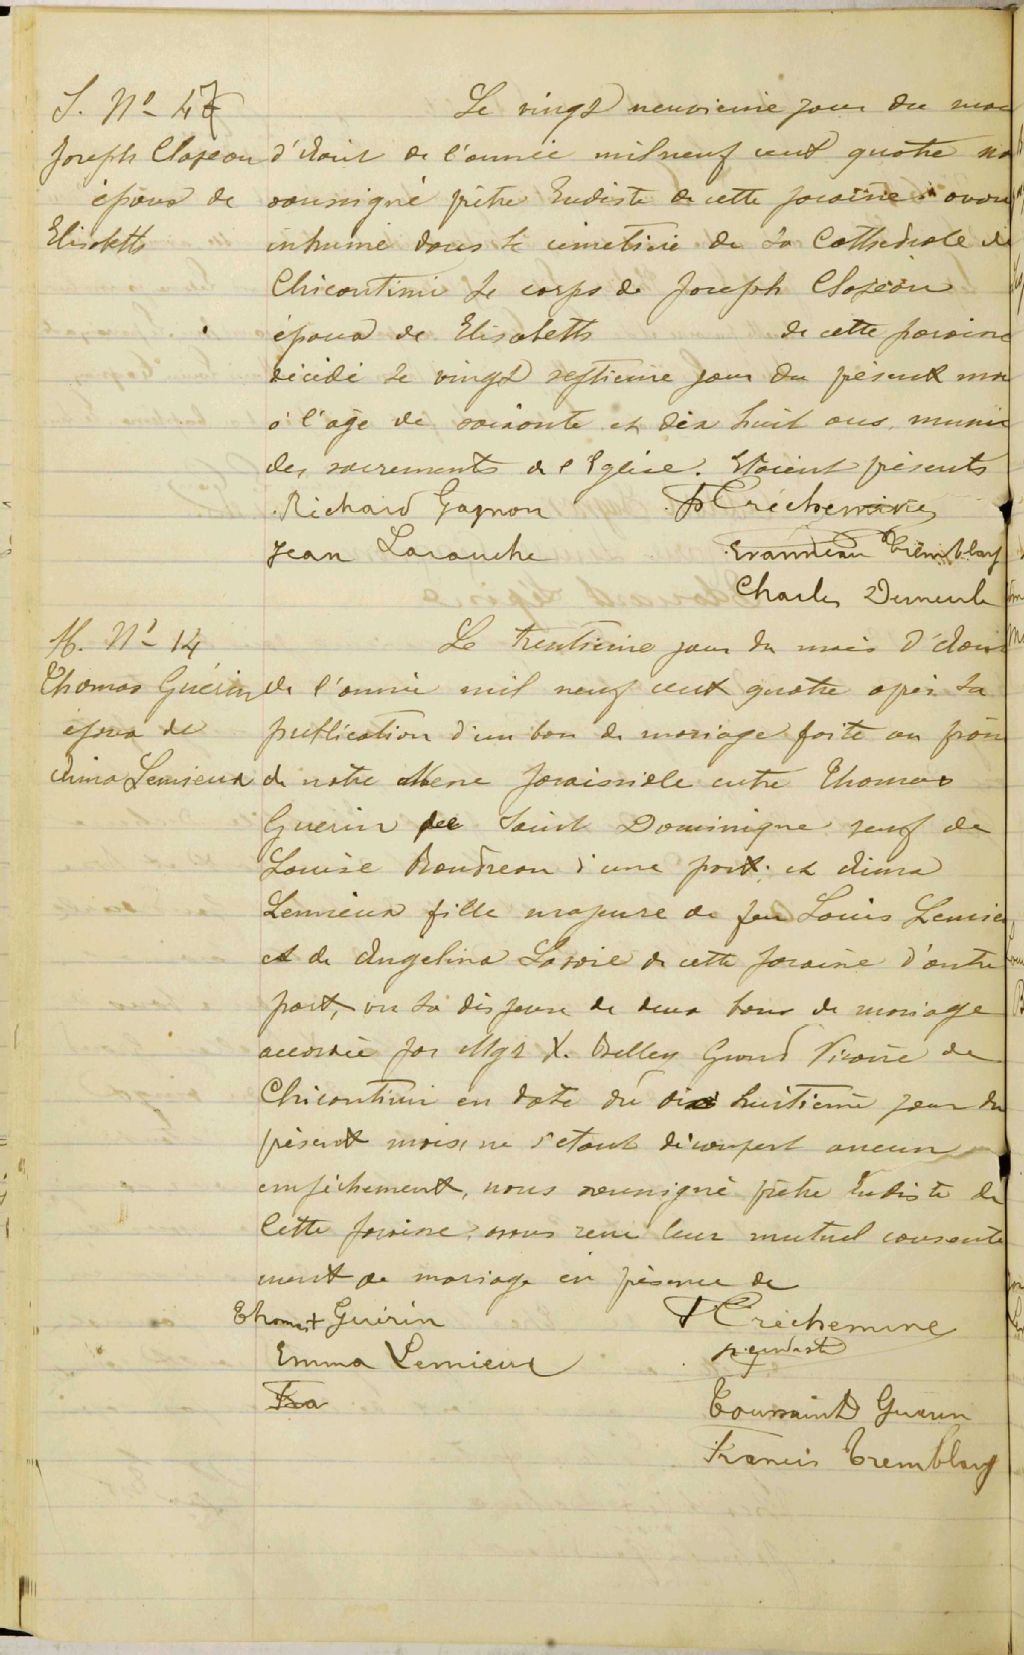 S. No 47
Joseph Clapeau
époux de
Elisabeth
Le vingt neuvieme jour du mois
d'Août de l'année mil neuf cent quatre nous
soussigné prêtre Eudiste de cette paroisse avons
inhumé dans le cimetière de la Cathédrale de
Chicoutimi le corps de Joseph Clapeau
époux de Elisabeth de cette paroisse
décédé le vingt septieme jour du présent mois
à l'âge de soixante et dix huit ans, muni
des sacrements de l'Eglise. Etaient présents
Richard Gagnon
Jean Larouche Tremblay
Charles
M. No 14
Thomas Guérin
époux de
Lemieux
Le trentieme jour du mois d'Août
de l'année mil neuf cent quatre après la
publication d'un ban de mariage faite au prône
de notre Messe paroissiale entre Thomas
Guerin de Saint Dominique veuf de
Louise Boudreau d'une part; et
Lemieux fille majeure de feu Louis Lemieux
et de Angelina Lavoie de cette paroisse d'autre
part, vu la dispense de deux bans de mariage
accordée par Mgr Belley Grand Vicaire de
Chicoutimi en date du dix huitieme jour du
présent mois, ne s'étant découvert aucun
empêchement, nous soussigné prêtre Eudiste de
Cette paroisse avons reçu leur mutuel consente
ment de mariage en présence de
Thomas Guérin
Emma Lemieux
Fra
Toussaint Guerin
Francis Tremblay